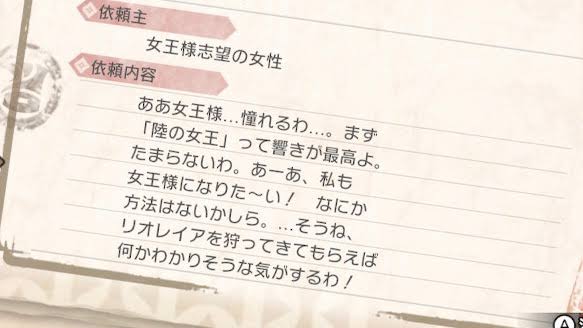 依頼主
女王様志望の女性
依頼内容
ああ女王様…憧れるわ…。まず
「陸の女王」って響きが最高よ。
たまらないわ。あーあ、私も
女王様になりた～い！　なにか
方法はないかしら。…そうね、
リオレイアを狩ってきてもらえば
何かわかりそうな気がするわ！
A